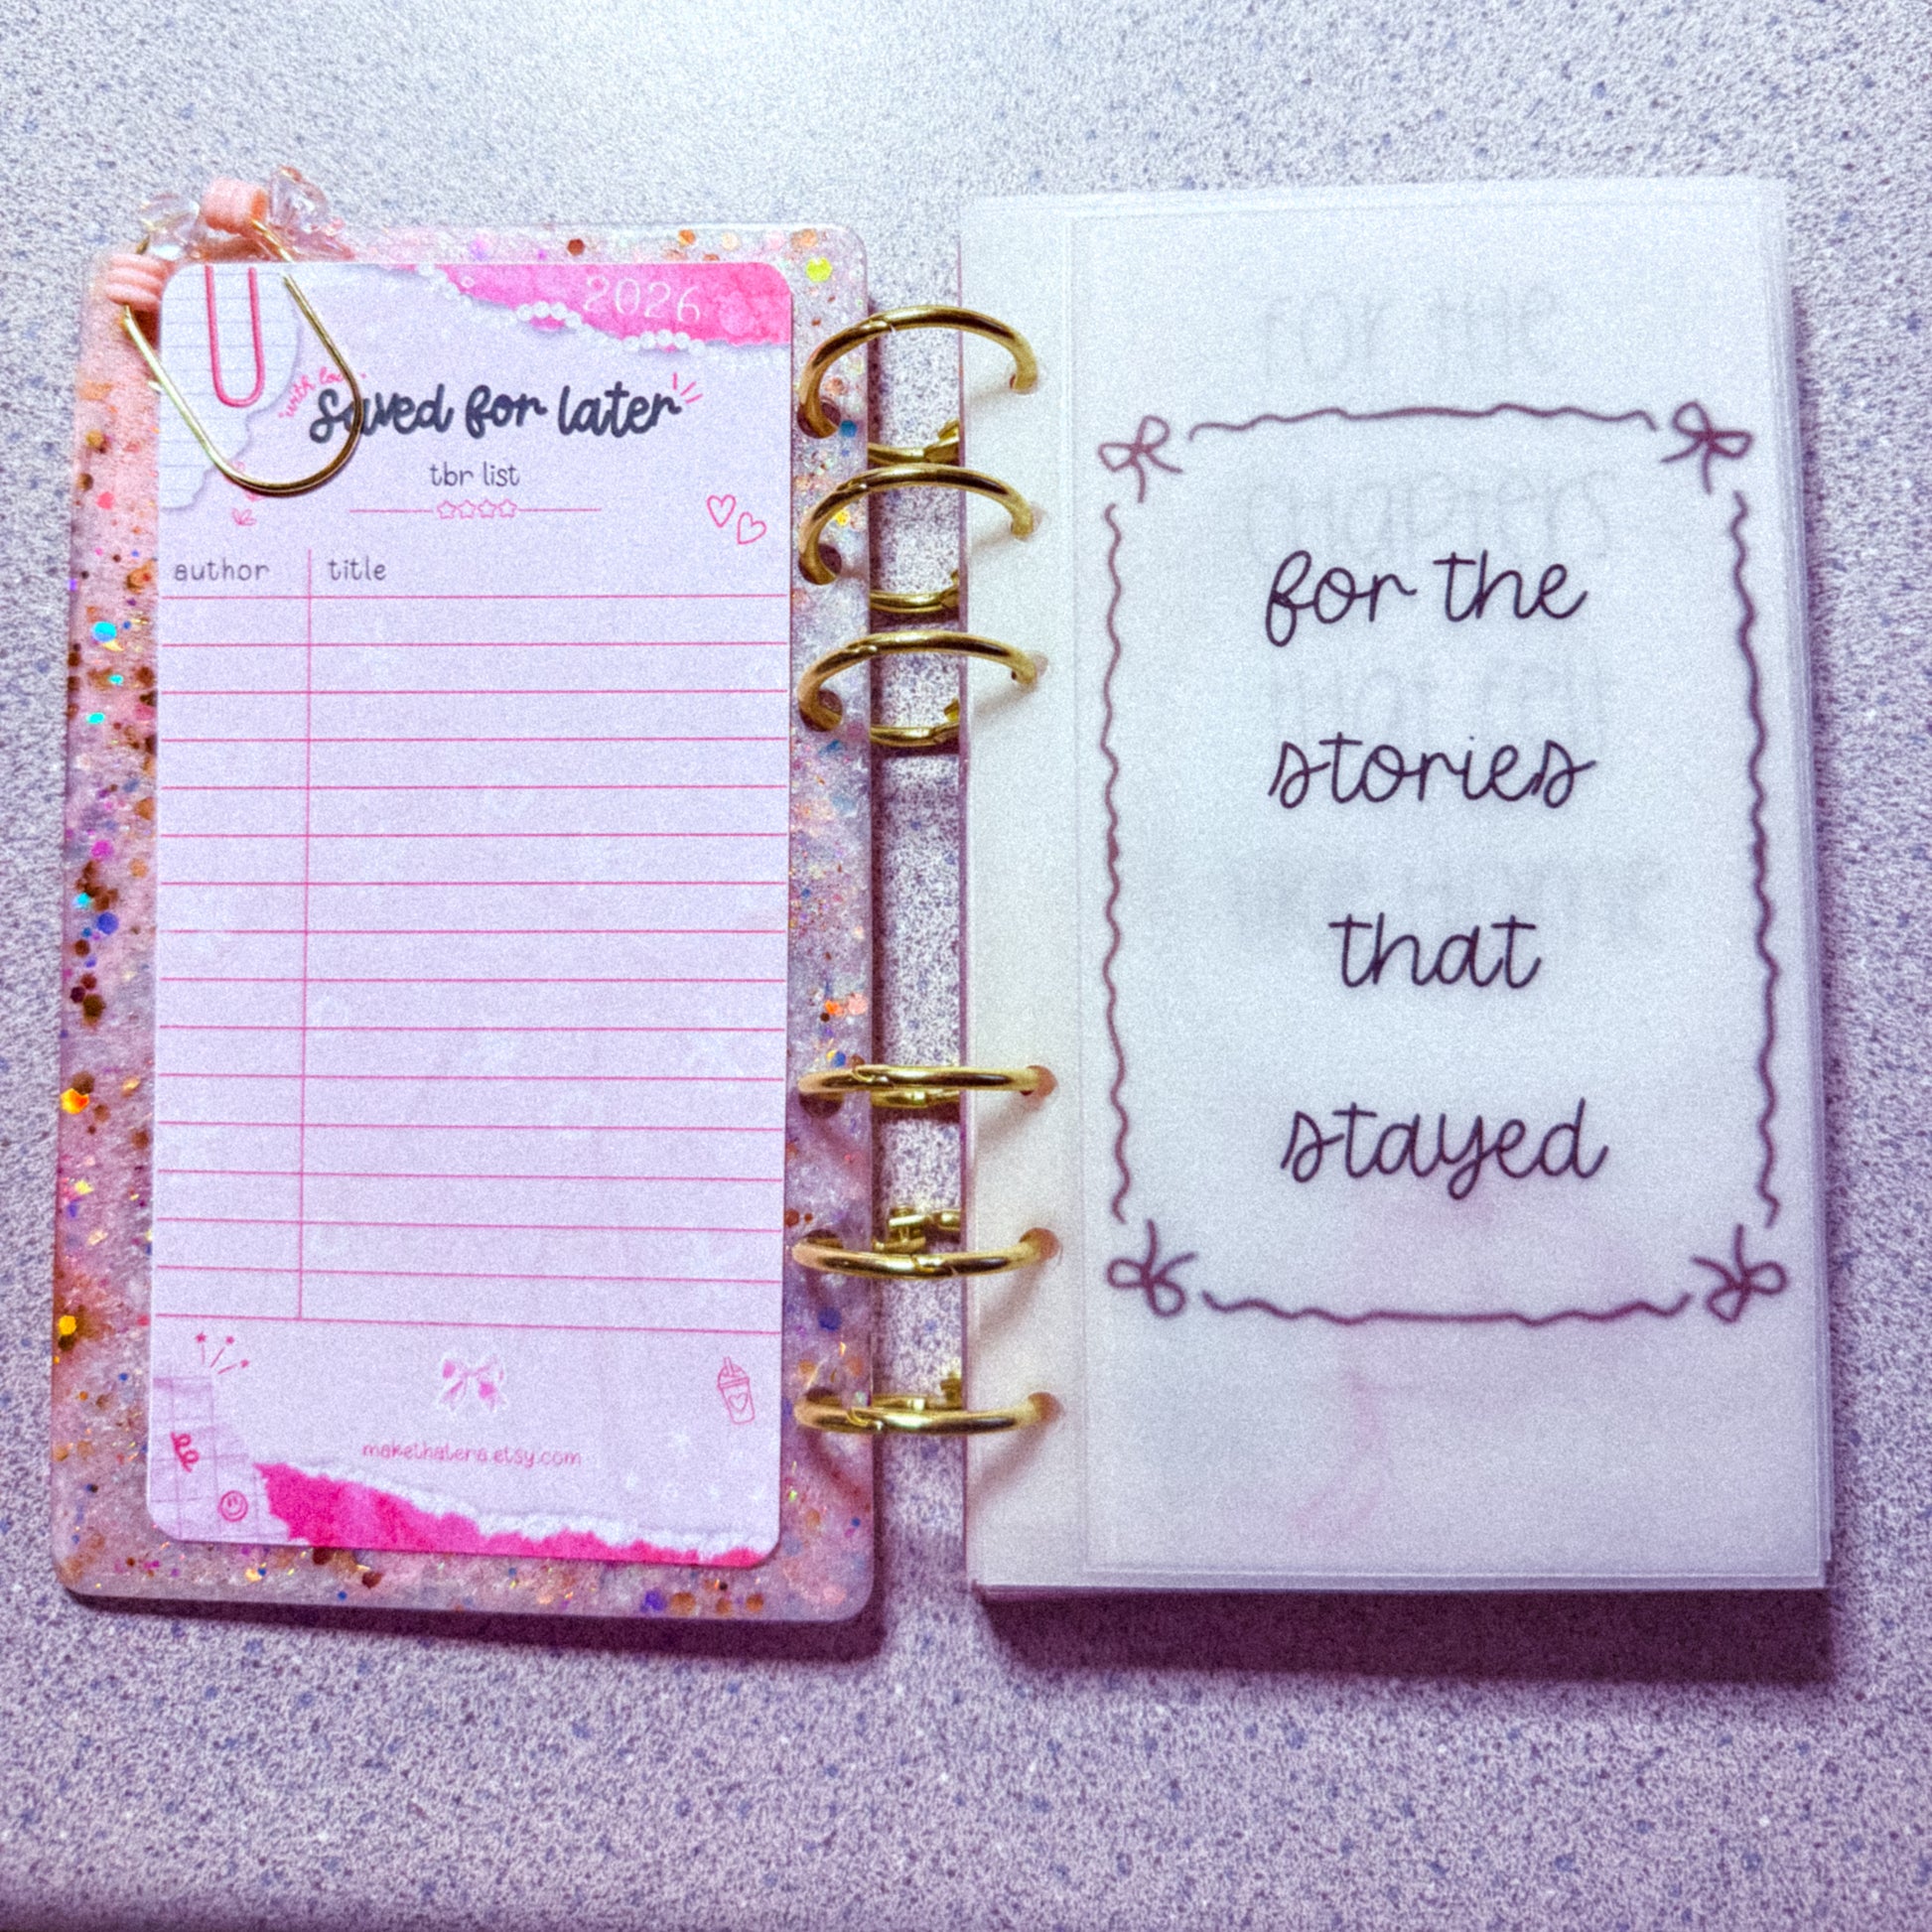 2026
"with love"
Saved for later
tbr list
author title
makethatera.etsy.com
for the
stories
that
stayed
for the
chapters
that felt